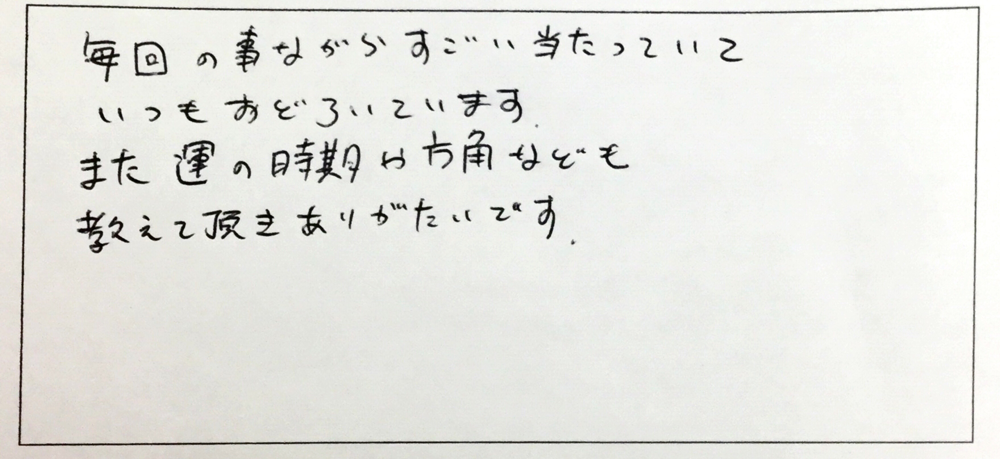 毎回の事ながらすごい当たっていて
いつもおどろいています.
また運の時期や方角なども
教えて頂きありがたいです.